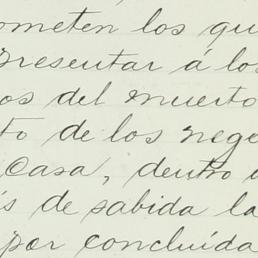 ometen los qu
presentar á los
os del muerto
to de los nego
casa, dentro d
is de sabida la
por concluída